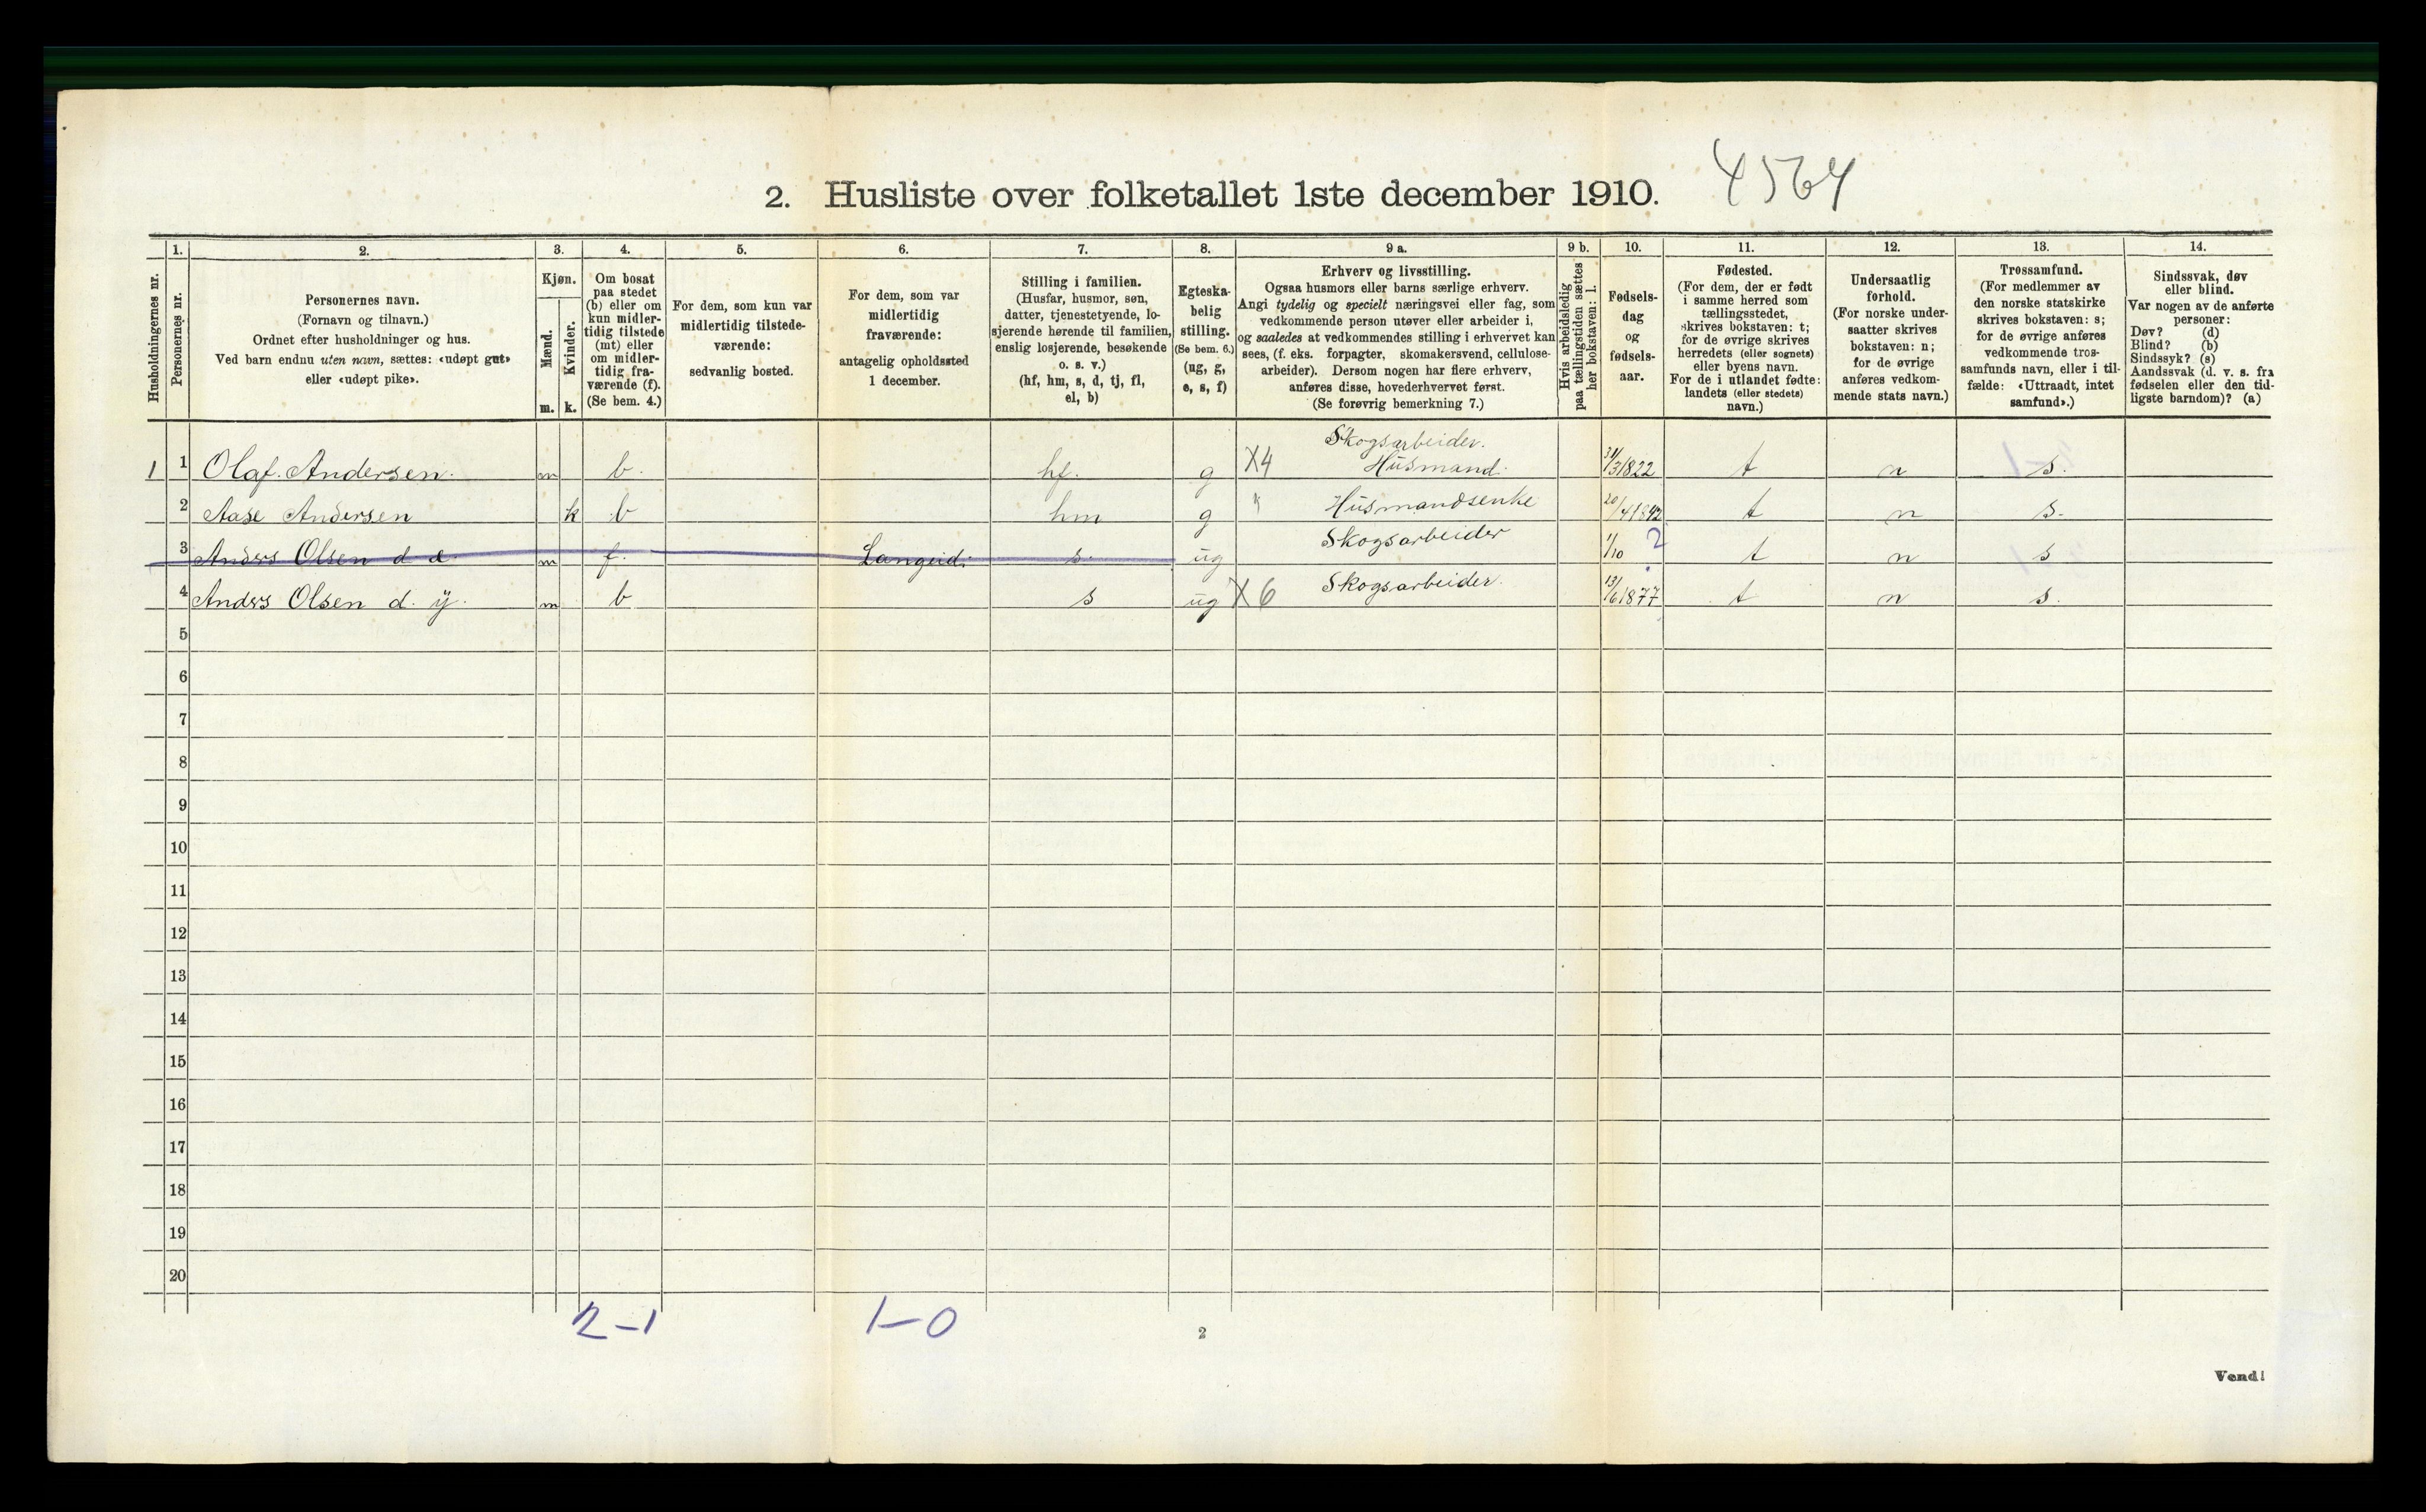 2. Husliste over folketallet 1ste december 1910. 4564
Husholdningernes nr.
1.
Personernes nr.
2.
Personernes navn.
(Fornavn og tilnavn.)
Ordnet efter husholdninger og hus.
Ved barn endnu uten navn, sættes: «udøpt gut»
eller «udøpt pike».
3.
Kjøn.
Mænd.
Kvinder.
m. k.
4.
Om bosat
paa stedet
(b) eller om
kun midler-
tidig tilstede
(mt) eller
om midler-
tidig fra-
værende (f).
(Se bem. 4.)
5.
For dem, som kun var
midlertidig tilstede-
værende:
sedvanlig bosted.
6.
For dem, som var
midlertidig
fraværende:
antagelig opholdssted
1 december.
7.
Stilling i familien.
(Husfar, husmor, søn,
datter, tjenestetyende, lo-
sjerende hørende til familien,
enslig losjerende, besøkende
o. s. v.)
(hf, hm, s, d, tj, fl,
el, b)
8.
Egteska-
belig
stilling.
(Se bem. 6.)
(ug, g,
e, s, f)
9 a.
Erhverv og livsstilling.
Ogsaa husmors eller barns særlige erhverv.
Angi tydelig og specielt næringsvei eller fag, som
vedkommende person utøver eller arbeider i,
og saaledes at vedkommendes stilling i erhvervet kan
sees, (f. eks. forpagter, skomakersvend, cellulose-
arbeider). Dersom nogen har flere erhverv,
anføres disse, hovederhvervet først.
(Se forøvrig bemerkning 7.)
9 b.
Hvis arbeidsledig
paa tællingstiden sættes
her bokstaven: l.
10.
Fødsels-
dag
og
fødsels-
aar.
11.
Fødested.
(For dem, der er født
i samme herred som
tællingsstedet,
skrives bokstaven: t;
for de øvrige skrives
herredets (eller sognets)
eller byens navn.
For de i utlandet fødte:
landets (eller stedets)
navn.)
12.
Undersaatlig
forhold.
(For norske under-
saatter skrives
bokstaven: n;
for de øvrige
anføres vedkom-
mende stats navn.)
13.
Trossamfund.
(For medlemmer av
den norske statskirke
skrives bokstaven: s;
for de øvrige anføres
vedkommende tros-
samfunds navn, eller i til-
fælde: «Uttraadt, intet
samfund».)
14.
Sindssvak, døv
eller blind.
Var nogen av de anførte
personer:
Døv? (d)
Blind? (b)
Sindssyk? (s)
Aandssvak (d. v. s. fra
fødselen eller den tid-
ligste barndom)? (a)
Skogsarbeider.
1 1 Olaf. Andersen. m b. hf. g X4 Husmand. 31/3 1822 t n s.
2 Aase Andersen k b hm g Husmandsenke 20/4 1842 t n s.
3 Anders Olsen d e. m f. Langeid. s. ug Skogsarbeider 1/10 2 t n s
4 Anders Olsen d. y. m b s ug X6 Skogsarbeider. 13/6 1877 t n s.
5
6
7
8
9
10
11
12
13
14
15
16
17
18
19
20
2-1 1-0
2
Vend!